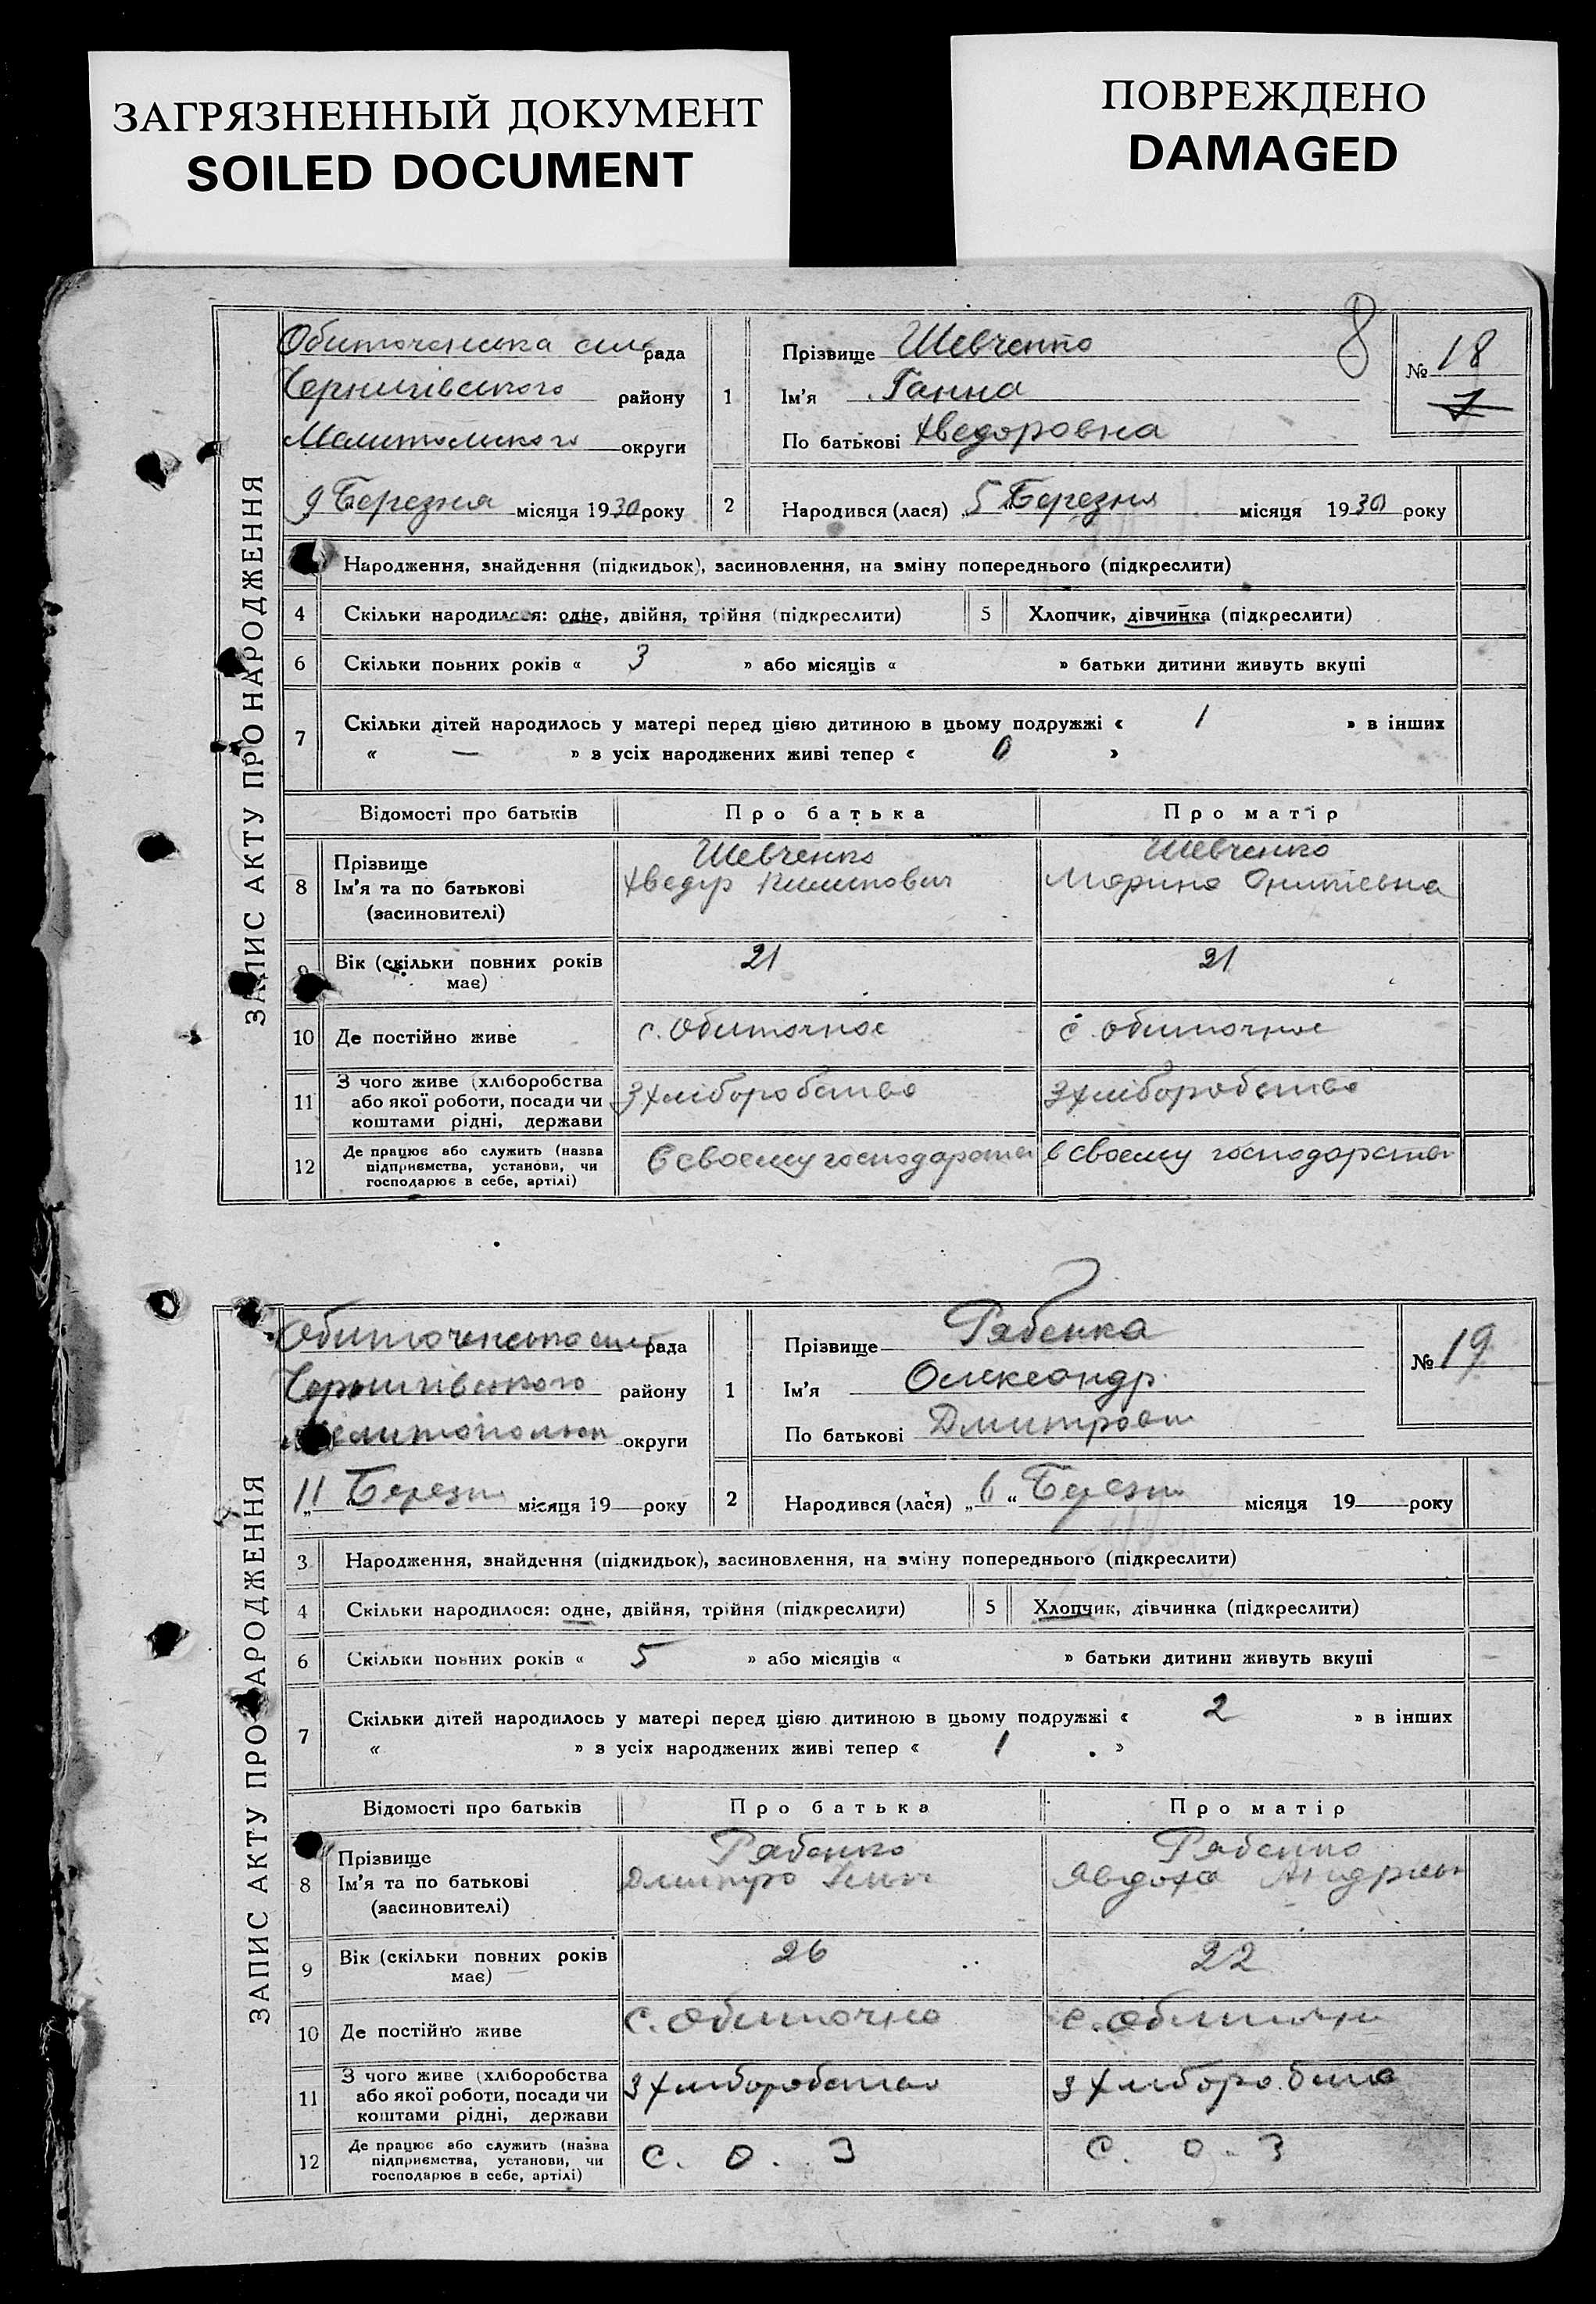 ЗАГРЯЗНЕННЫЙ ДОКУМЕНТ
SOILED DOCUMENT
ПОВРЕЖДЕНО
DAMAGED
8
ЗАПИС АКТУ ПРО НАРОДЖЕННЯ
Обиточенська сил рада
Чернигівського району
Мелитольского округи
9 Березня місяця 1930 року
1 Прізвище Шевченко
Ім'я Ганна
По батькові Хведоровна
№ 18
7
2 Народився (лася) 5 Березня місяця 1930 року
Народження, знайдення (підкидьок), засиновлення, на зміну попереднього (підкреслити)
4 Скільки народилося: одне, двійня, трійня (підкреслити) 5 Хлопчик, дівчинка (підкреслити)
6 Скільки повних років « 3 » або місяців « » батьки дитини живуть вкупі
7 Скільки дітей народилось у матері перед цією дитиною в цьому подружжі « 1 » в інших
« — » з усіх народжених живі тепер « 0 »
Відомості про батьків Про батька Про матір
8 Прізвище Шевченко Шевченко
Ім'я та по батькові Хведір Марина
(засиновителі)
9 Вік (скільки повних років має) 21 21
10 Де постійно живе с. Обиточное с. обиточное
11 З чого живе (хліборобства або якої роботи, посади чи коштами рідні, держави З хліборобства З хліборобства
12 Де працює або служить (назва підприємства, установи, чи господарює в себе, артілі) В своему господарстві в своему господарстві
ЗАПИС АКТУ ПРО НАРОДЖЕННЯ
Обиточенська сил рада
Чернигівського району
округи
11 Березн місяця 19 року
1 Прізвище Рябенка
Ім'я Олександр
По батькові Дмитрович
№ 19
2 Народився (лася) „6“ Березн місяця 19 року
3 Народження, знайдення (підкидьок), засиновлення, на зміну попереднього (підкреслити)
4 Скільки народилося: одне, двійня, трійня (підкреслити) 5 Хлопчик, дівчинка (підкреслити)
6 Скільки повних років « 5 » або місяців « » батьки дитини живуть вкупі
7 Скільки дітей народилось у матері перед цією дитиною в цьому подружжі « 2 » в інших
« » з усіх народжених живі тепер « 1 »
Відомості про батьків Про батька Про матір
8 Прізвище Рябенко Рябенко
Ім'я та по батькові Дмитро Явдоха
(засиновителі)
9 Вік (скільки повних років має) 26 22
10 Де постійно живе с. Обиточно с. Обиточн
11 З чого живе (хліборобства або якої роботи, посади чи коштами рідні, держави З хліборобства З хліборобства
12 Де працює або служить (назва підприємства, установи, чи господарює в себе, артілі) С. О. З С. О. З